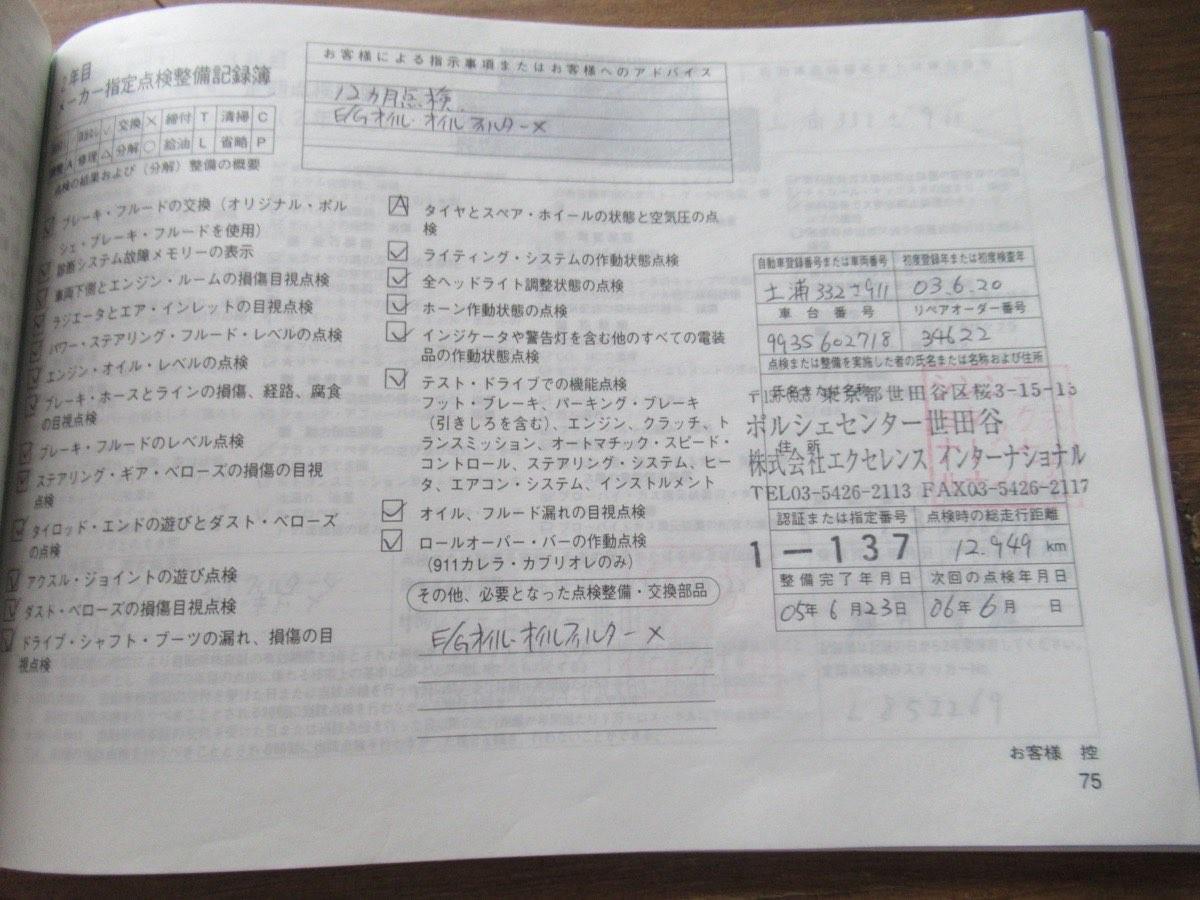 2年目
メーカー指定点検整備記録簿
交換 × 締付 T 清掃 C
A 修理 △ 分解 ○ 給油 L 省略 P
点検の結果および（分解）整備の概要
お客様による指示事項またはお客様へのアドバイス
12ヵ月点検
E/Gオイル・オイルフィルター×
ブレーキ・フルードの交換（オリジナル・ポル
シェ・ブレーキ・フルードを使用）
診断システム故障メモリーの表示
車両下側とエンジン・ルームの損傷目視点検
ラジエータとエア・インレットの目視点検
パワー・ステアリング・フルード・レベルの点検
エンジン・オイル・レベルの点検
ブレーキ・ホースとラインの損傷、経路、腐食
の目視点検
ブレーキ・フルードのレベル点検
ステアリング・ギア・ベローズの損傷の目視
点検
タイロッド・エンドの遊びとダスト・ベローズ
の点検
アクスル・ジョイントの遊び点検
ダスト・ベローズの損傷目視点検
ドライブ・シャフト・ブーツの漏れ、損傷の目
視点検
A タイヤとスペア・ホイールの状態と空気圧の点
検
ライティング・システムの作動状態点検
全ヘッドライト調整状態の点検
ホーン作動状態の点検
インジケータや警告灯を含む他のすべての電装
品の作動状態点検
テスト・ドライブでの機能点検
フット・ブレーキ、パーキング・ブレーキ
（引きしろを含む）、エンジン、クラッチ、ト
ランスミッション、オートマチック・スピード・
コントロール、ステアリング・システム、ヒー
タ、エアコン・システム、インストルメント
オイル、フルード漏れの目視点検
ロールオーバー・バーの作動点検
（911カレラ・カブリオレのみ）
その他、必要となった点検整備・交換部品
E/Gオイル・オイルフィルター×
自動車登録番号または車両番号 初度登録年または初度検査年
土浦 332 さ 911 03.6.20
車台番号 リペアオーダー番号
9935602718 34622
点検または整備を実施した者の氏名または名称および住所
氏名または名称
東京都世田谷区桜3-15-15
ポルシェセンター世田谷
住所
株式会社エクセレンス インターナショナル
TEL03-5426-2113 FAX03-5426-2117
認証または指定番号 点検時の総走行距離
1-137 12.949 km
整備完了年月日 次回の点検年月日
05年6月23日 06年6月 日
お客様 控
75